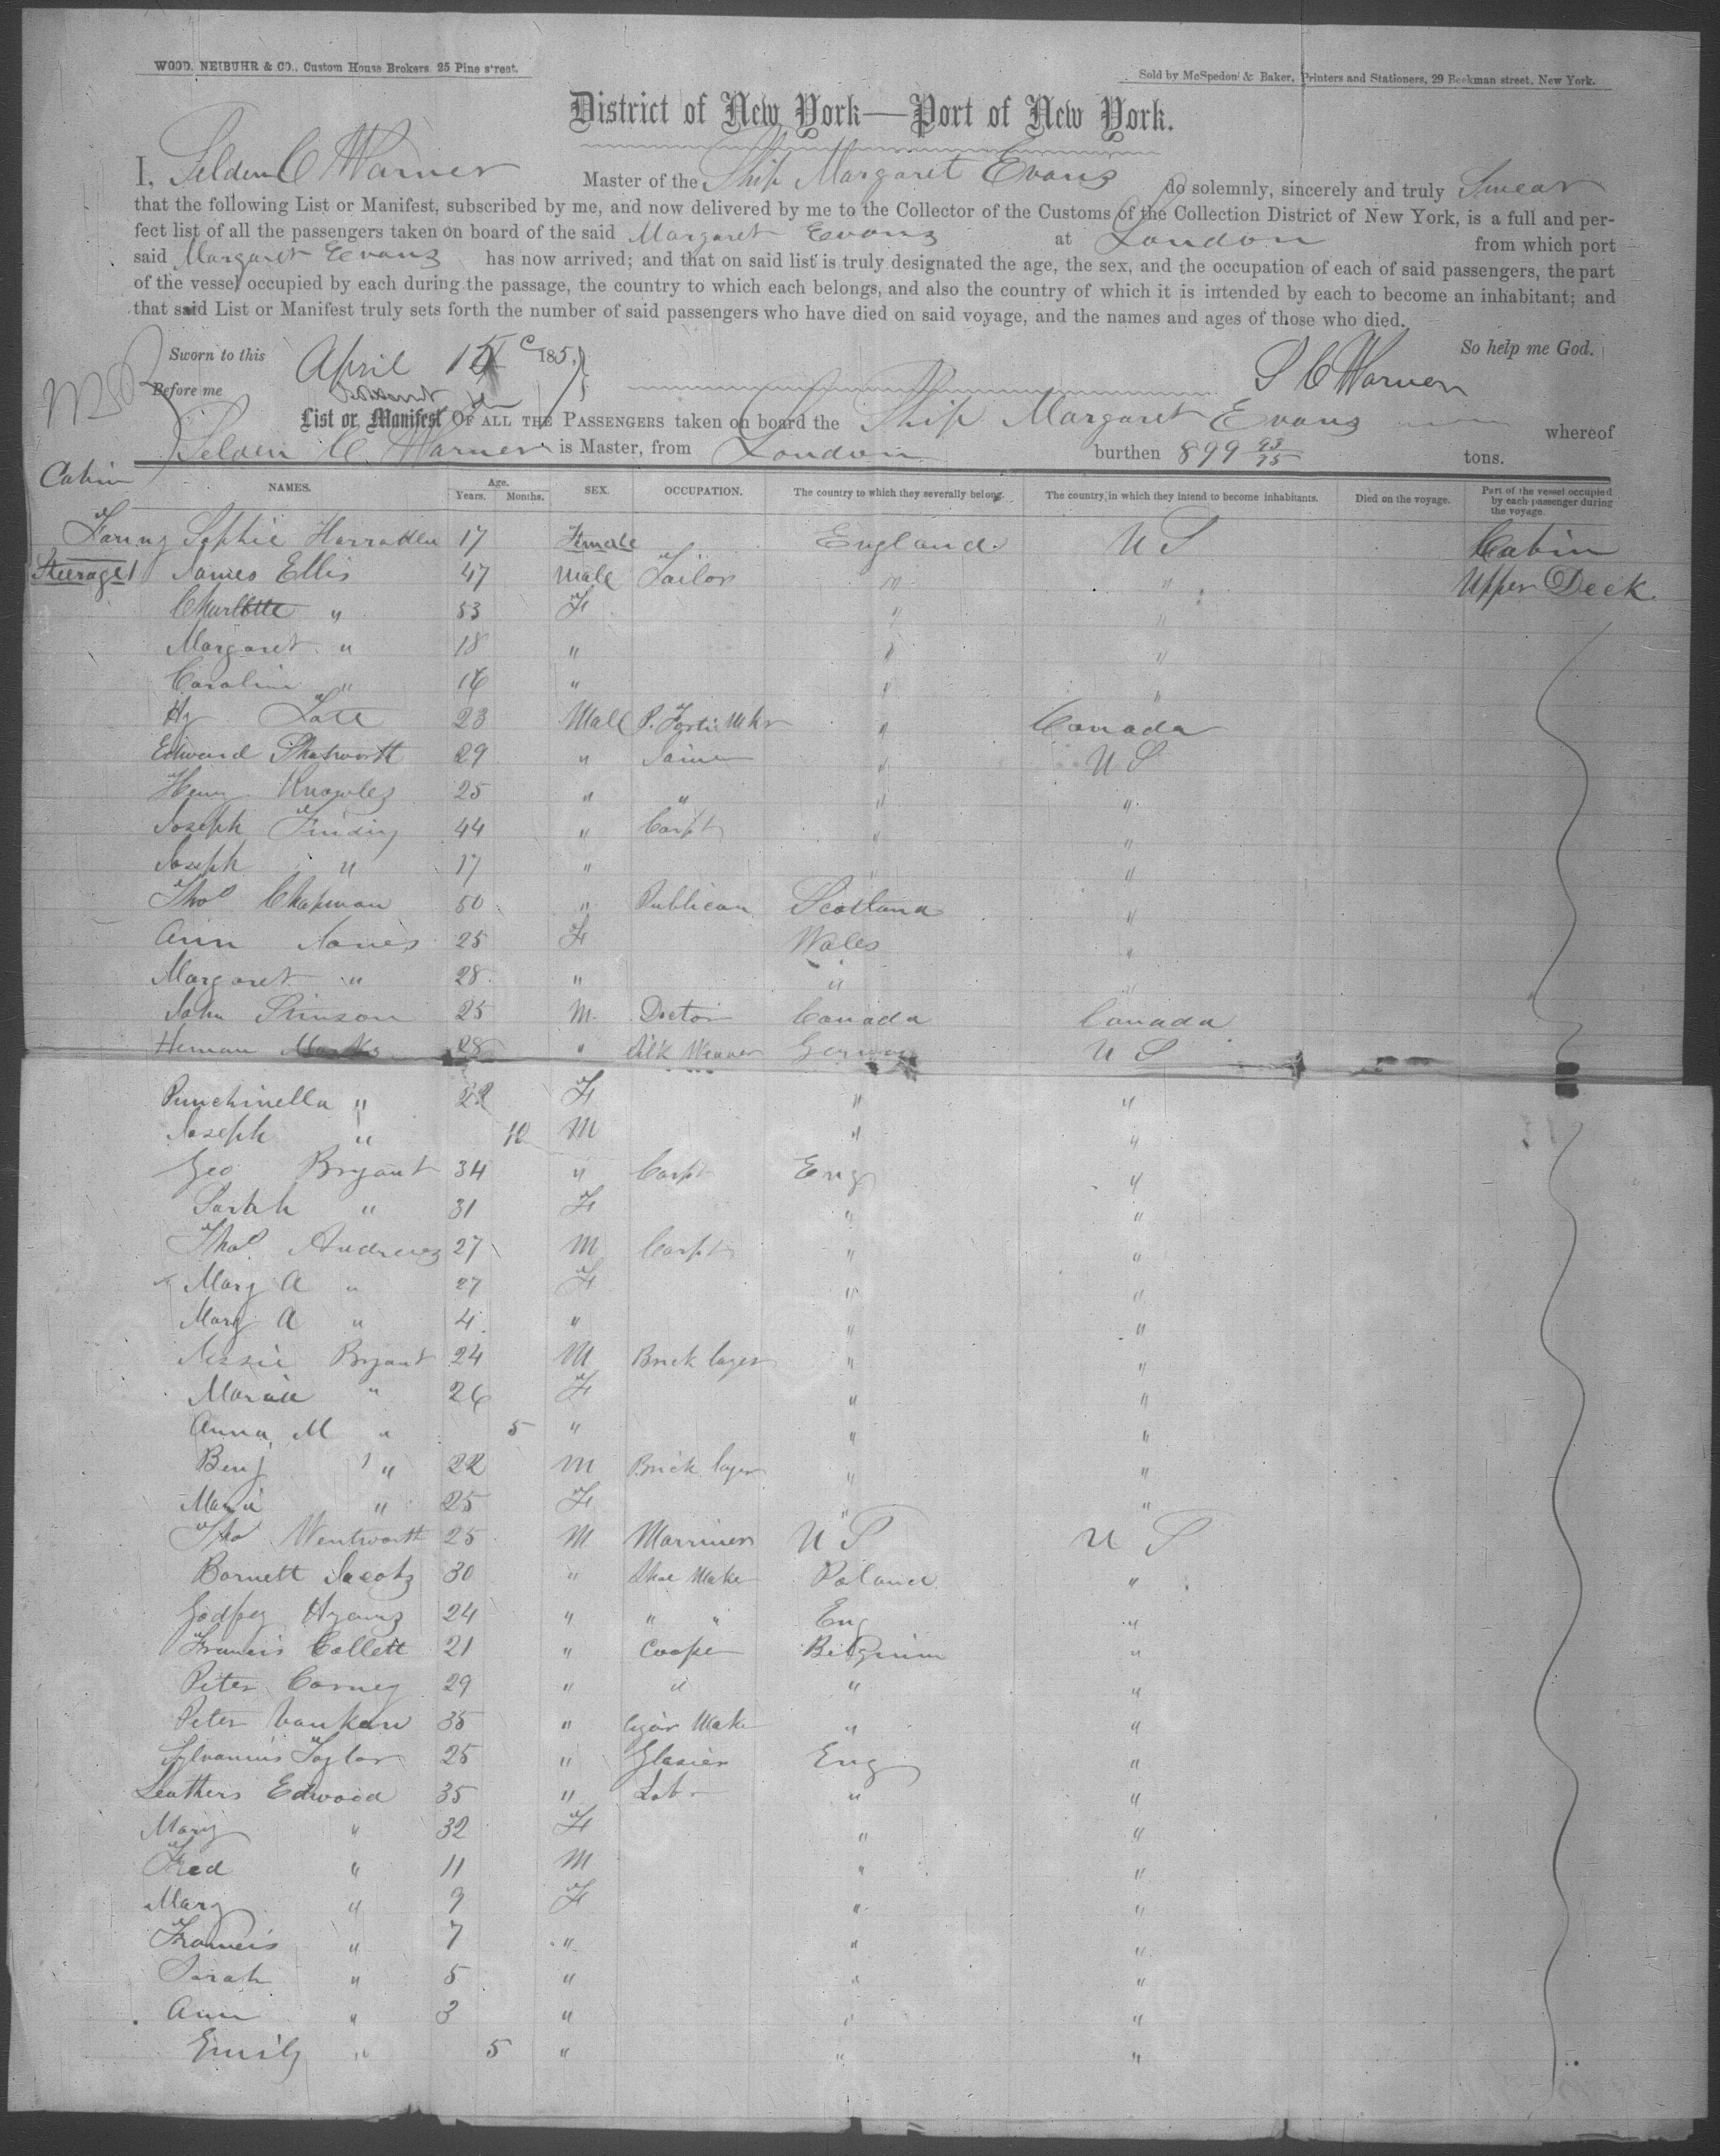 WOOD, NEIBUHR & CO., Custom House Brokers, 25 Pine street.
Sold by McSpedon & Baker, Printers and Stationers, 29 Beekman street, New York.
District of New York—Port of New York.
I, Selden C Warner Master of the Ship Margaret Evans do solemnly, sincerely and truly Swear
that the following List or Manifest, subscribed by me, and now delivered by me to the Collector of the Customs of the Collection District of New York, is a full and per-
fect list of all the passengers taken on board of the said Margaret Evans at London from which port
said Margaret Evans has now arrived; and that on said list is truly designated the age, the sex, and the occupation of each of said passengers, the part
of the vessel occupied by each during the passage, the country to which each belongs, and also the country of which it is intended by each to become an inhabitant; and
that said List or Manifest truly sets forth the number of said passengers who have died on said voyage, and the names and ages of those who died.
Sworn to this April 185 So help me God.
Before me S C Warner
List or Manifest OF ALL THE PASSENGERS taken on board the Ship Margaret Evans whereof
Selden C Warner is Master, from London burthen 899 93/95 tons.
Cabin
NAMES. Age. Years. Months. SEX. OCCUPATION. The country to which they severally belong. The country in which they intend to become inhabitants. Died on the voyage. Part of the vessel occupied by each passenger during the voyage.
Sophie 17 Female England U S Cabin
Steerage James Ellis 47 Male Tailor " " Upper Deck
Charlotte " 53 F " "
Margaret " 18 " " "
Caroline " 16 " " "
Hy Tate 23 Male P. Forte Mkr " Canada
Edward 29 " " U S
Henry Knowles 25 " " " "
Joseph 44 " Carpt " "
Joseph " 17 " " "
Thos Chapman 50 " Publican Scotland "
Ann James 25 F Wales "
Margaret " 28 " " "
John Stinson 25 M Doctor Canada Canada
Herman Marks 28 " Silk Weaver Germany U S
Punchinella " 22 F " "
Joseph " 10 M " "
Geo Bryant 34 " Carpt Eng "
Sarah " 31 F " "
Thos Andrews 27 M Carpt " "
Mary A " 27 F " "
Mary A " 4 " " "
Jessie Bryant 24 M Brick layer " "
Maria " 26 F " "
Anna M " 5 " " "
Benj " 22 M Brick layer " "
Maria " 25 F " "
Tho Wentworth 25 M Marriner U S U S
Barnett Jacobs 30 " Shoe Make Poland "
Godfrey Hyams 24 " " " Eng "
Francis Collett 21 " Cooper Belgium "
Peter Carney 29 " " " "
Peter Vankan 35 " Cigar Make " "
Sylvanius Taylor 25 " Glasier Eng "
Leathers Edwood 35 " Labr " "
Mary " 32 F " "
Fred " 11 M " "
Mary " 9 F " "
Francis " 7 " " "
Sarah " 5 " " "
Ann " 3 " " "
Emily " 5 " " "